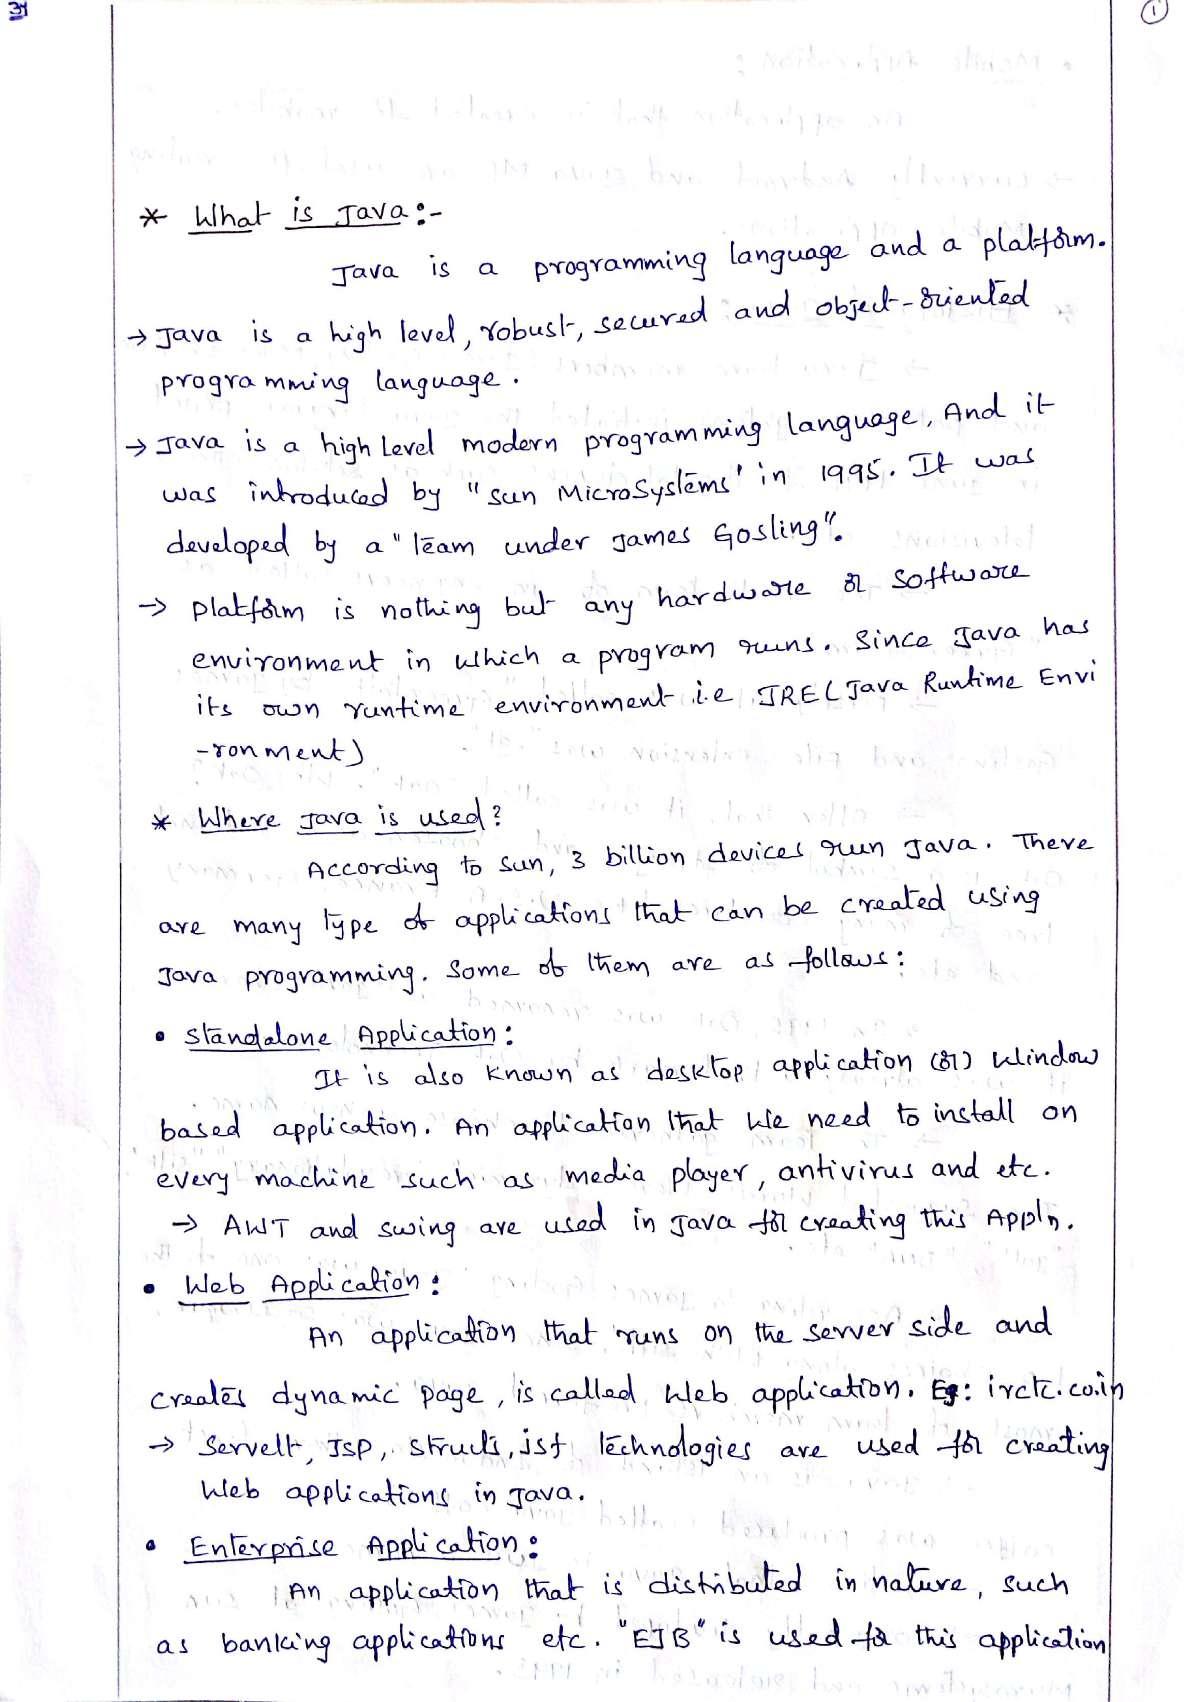 1
* What is Java:-
Java is a programming language and a platform.
→ Java is a high level, robust, secured and object-oriented
programming language.
→ Java is a high Level modern programming language, And it
was introduced by "Sun MicroSystems' in 1995. It was
developed by a "Team under James Gosling".
→ platform is nothing but any hardware or Software
environment in which a program runs. Since Java has
its own runtime environment i.e JRE (Java Runtime Envi
-ronment)
* Where Java is used?
According to Sun, 3 billion devices run Java. There
are many type of applications that can be created using
Java programming. Some of them are as follows:
• Standalone Application:
It is also known as desktop application (or) Window
based application. An application that We need to install on
every machine such as media player, antivirus and etc.
→ AWT and swing are used in Java for creating this Appln.
• Web Application:
An application that runs on the server side and
creates dynamic page, is called Web application. Eg: irctc.co.in
→ Servelt, JSP, Structs, jsf technologies are used for creating
Web applications in Java.
• Enterprise Application:
An application that is distributed in nature, such
as banking applications etc. "EJB" is used for this application